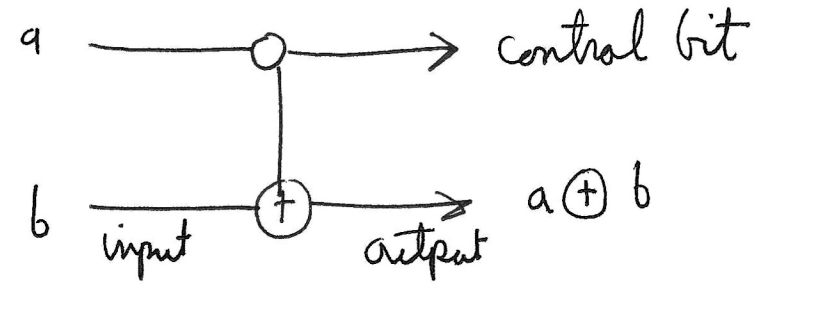 a control bit
b a ⊕ b
input output